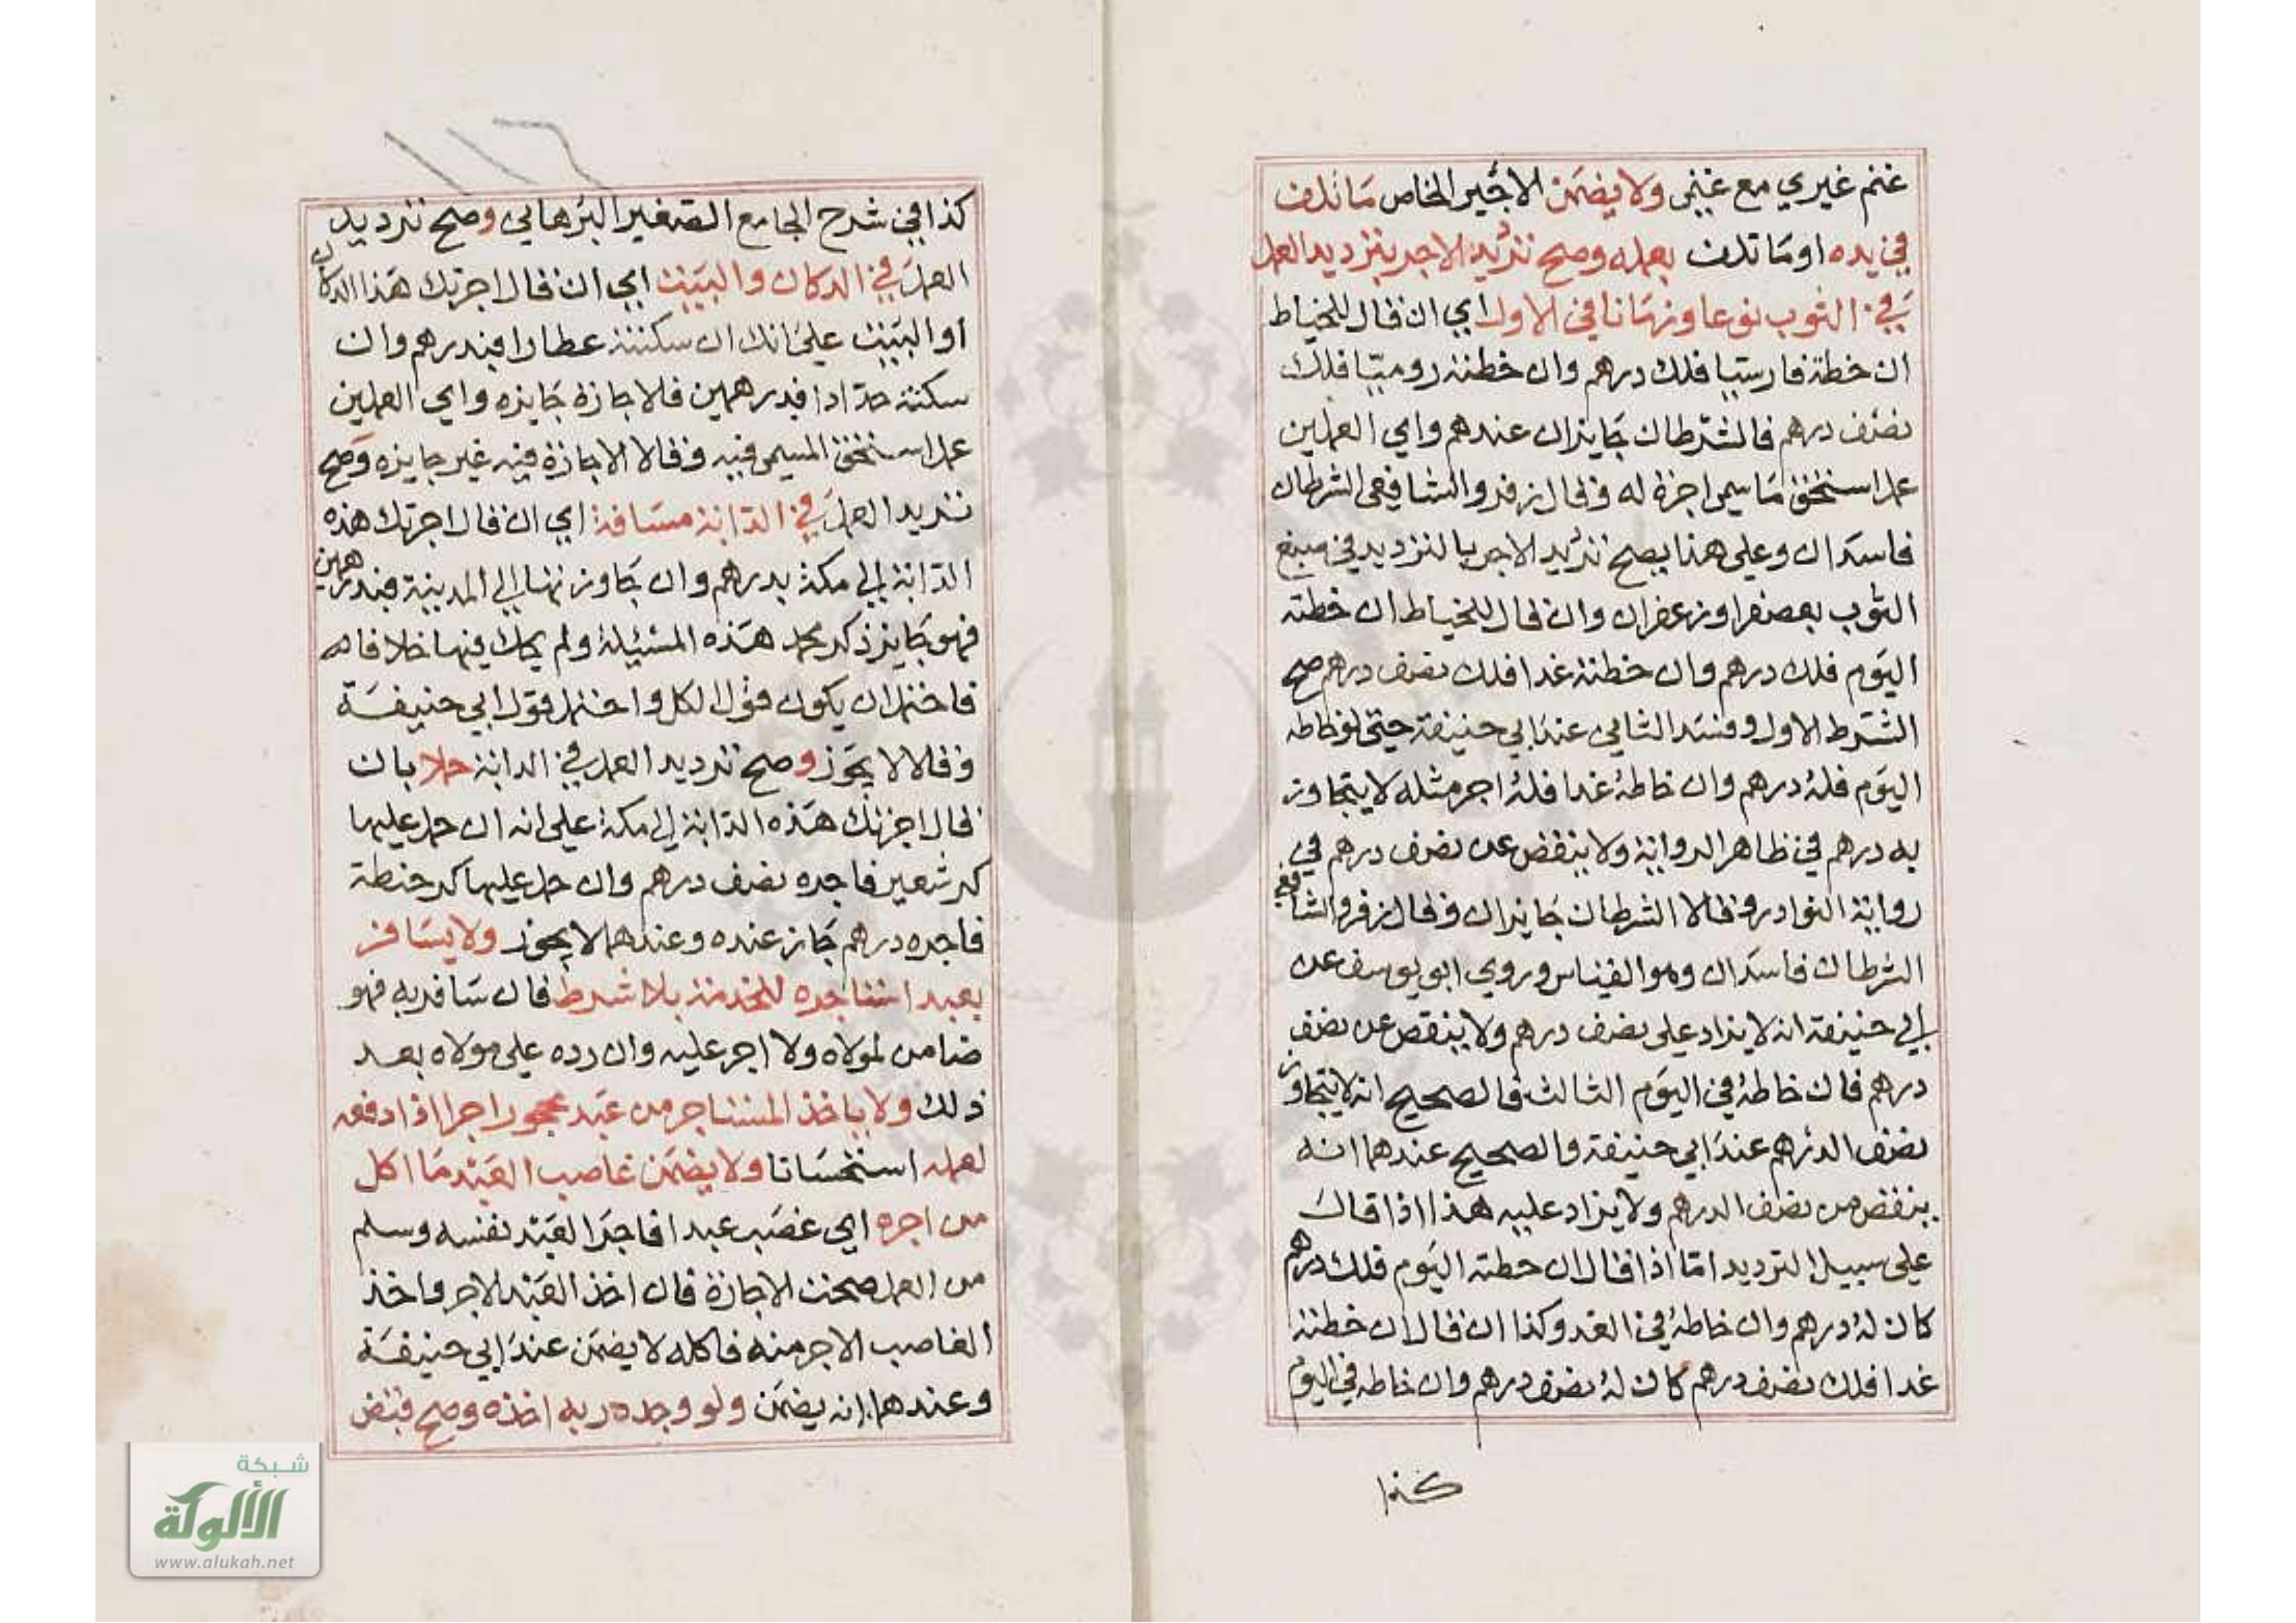 غنم غيري مع غنمي ولا يضمن الاجير الخاص ما تلف
في يده او ما تلف بعمله وصح ترديد الاجر بترديد العمل
في الثوب نوعا وزمانا في الاول اي ان قال للخياط
ان خطته فارسيا فلك درهم وان خطته روميا فلك
نصف درهم فالشرطان جايزان عندهم واي العملين
عمل استحق ما سمي اجرة له وقال زفر والشافعي الشرطان
فاسدان وعلي هذا يصح ترديد الاجر بالترديد في صبغ
الثوب بعصفر او زعفران وان قال للخياط ان خطته
اليوم فلك درهم وان خطته غدا فلك نصف درهم صح
الشرط الاول وفسد الثاني عند ابي حنيفة حتي لو خاطه
اليوم فله درهم وان خاطه غدا فله اجر مثله لا يتجاوز
به درهم في ظاهر الرواية ولا ينقض عن نصف درهم في
رواية النوادر وقالا الشرطان جايزان وقال زفر والشافعي
الشرطان فاسدان وهو القياس وروي ابو يوسف عن
ابي حنيفة انه لا يزاد على نصف درهم ولا ينقص عن نصف
درهم فان خاطه في اليوم الثالث فالصحيح انه لا يتجاوز
نصف الدرهم عند ابي حنيفة والصحيح عندهما انه
ينقض من نصف الدرهم ولا يزاد عليه هذا اذا قال
علي سبيل الترديد اما اذا قال ان خطته اليوم فلك درهم
كان له درهم وان خاطه في الغد وكذا ان قال ان خطته
غدا فلك نصف درهم كان له نصف درهم وان خاطه في اليوم
كذا
١١٦
كذا في شرح الجامع الصغير البرهاني وصح ترديد
العمل في الدكان والبيت اي ان قال اجرتك هذا الدكان
او البيت علي انك ان سكنته عطارا فبدرهم وان
سكنته حدادا فبدرهمين فالاجارة جايزه واي العملين
عمل استحق المسمي فيه وقالا الاجارة فيه غير جايزه وصح
ترديد العمل في الدابة مسافة اي ان قال اجرتك هذه
الدابة الي مكة بدرهم وان جاوزتها الي المدينة فبدرهمين
فهو جايز ذكر محمد هذه المسئيلة ولم يحك فيها خلافا
فاحتمل ان يكون قول الكل واحتمل قول ابي حنيفة
وقالا لا يجوز وصح ترديد العمل في الدابة حملا بان
قال اجرتك هذه الدابة الي مكة علي انه ان حمل عليها
كر شعير فاجره نصف درهم وان حمل عليها كر حنطة
فاجره درهم جاز عنده وعندهما لا يجوز ولا يسافر
بعبد استاجره للخدمة بلا شرط فان سافر به فهو
ضامن لمولاه ولا اجر عليه وان رده علي مولاه بعد
ذلك ولا ياخذ المستاجر من عبد محجور اجرا اذا دفعه
لعمله استحسانا ولا يضمن غاصب العبد ما اكل
من اجره اي غصب عبدا فاجر العبد نفسه وسلم
من العمل صحت الاجارة فان اخذ العبد الاجر واخذ
الغاصب الاجر منه فاكله لا يضمن عند ابي حنيفة
وعندهما انه يضمن ولو وجده ربه اخذه وصح قبض
شبكة
الألوكة
www.alukah.net